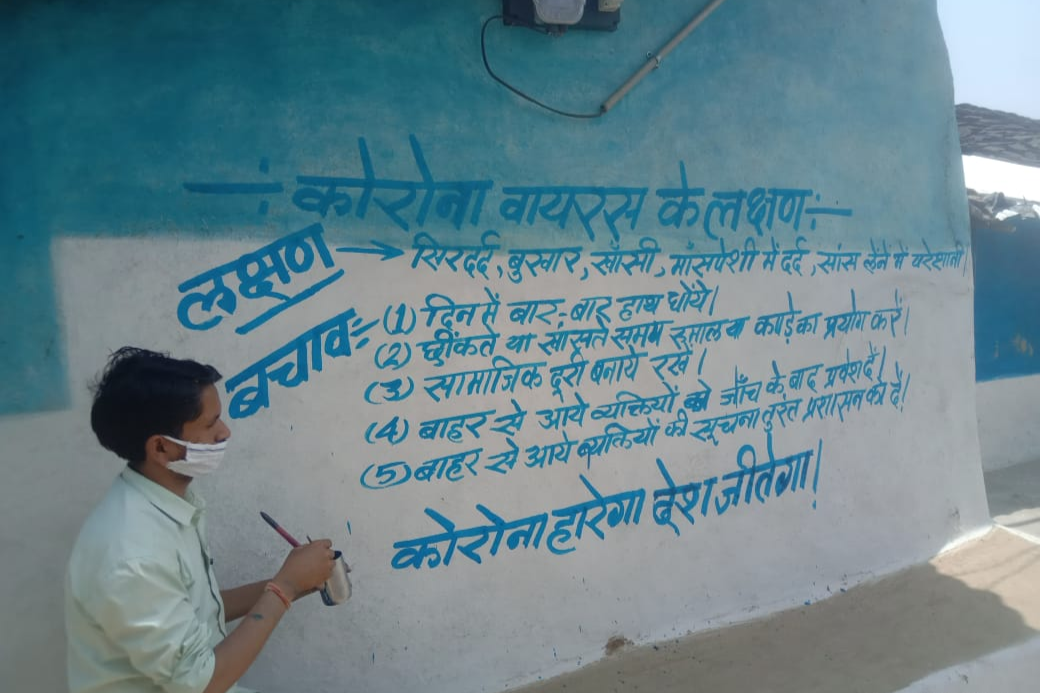 -: कोरोना वायरस के लक्षण:-
लक्षण → सिरदर्द, बुखार, खाँसी, मांसपेशी में दर्द, सांस लेने में परेशानी।
बचाव:- (1) दिन में बार-बार हाथ धोंये।
(2) छींकते या खांसते समय रूमाल या कपड़े का प्रयोग करें।
(3) सामाजिक दूरी बनाये रखें।
(4) बाहर से आये व्यक्तियों को जाँच के बाद प्रवेश दें।
(5) बाहर से आये व्यक्तियों की सूचना तुरंत प्रशासन को दें।
कोरोना हारेगा देश जीतेगा।